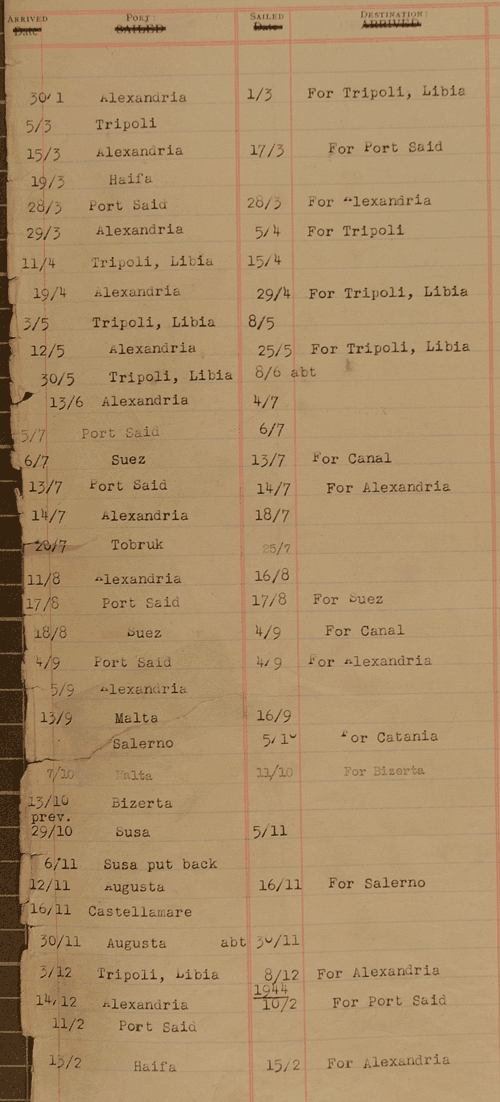 ARRIVED PORT: SAILED DESTINATION:
Date SAILED Date ARRIVED
30/1 Alexandria 1/3 For Tripoli, Libia
5/3 Tripoli
15/3 Alexandria 17/3 For Port Said
19/3 Haifa
28/3 Port Said 28/3 For Alexandria
29/3 Alexandria 5/4 For Tripoli
11/4 Tripoli, Libia 15/4
19/4 Alexandria 29/4 For Tripoli, Libia
3/5 Tripoli, Libia 8/5
12/5 Alexandria 25/5 For Tripoli, Libia
30/5 Tripoli, Libia 8/6 abt
13/6 Alexandria 4/7
5/7 Port Said 6/7
6/7 Suez 13/7 For Canal
13/7 Port Said 14/7 For Alexandria
14/7 Alexandria 18/7
20/7 Tobruk 25/7
11/8 Alexandria 16/8
17/8 Port Said 17/8 For Suez
18/8 Suez 4/9 For Canal
4/9 Port Said 4/9 For Alexandria
5/9 Alexandria
13/9 Malta 16/9
Salerno 5/10 For Catania
7/10 Malta 11/10 For Bizerta
13/10 Bizerta
prev.
29/10 Susa 5/11
6/11 Susa put back
12/11 Augusta 16/11 For Salerno
16/11 Castellamare
30/11 Augusta abt 30/11
3/12 Tripoli, Libia 8/12 For Alexandria
1944
14/12 Alexandria 10/2 For Port Said
11/2 Port Said
13/2 Haifa 15/2 For Alexandria